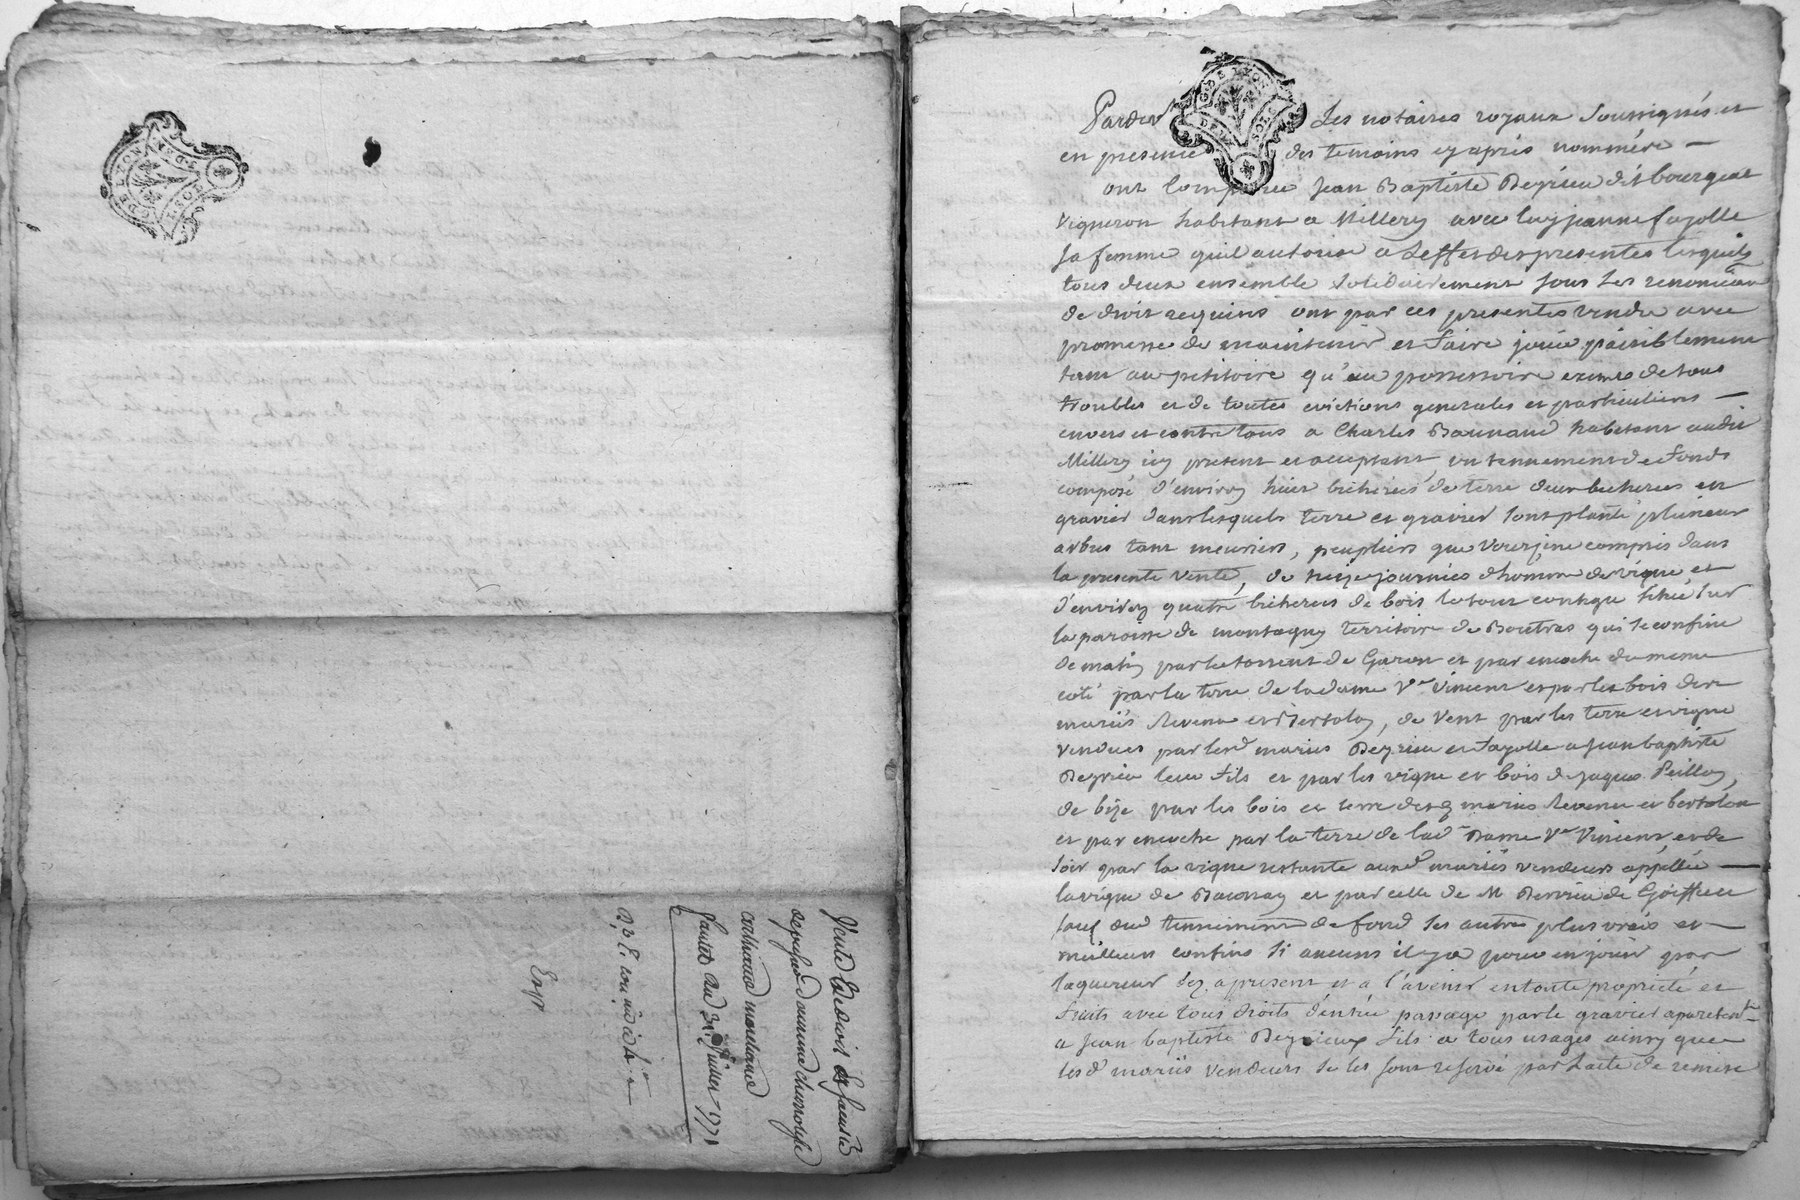 G. DE LYON
DEN.
SOLS
Vente Edouard
31 Juillet 1771
Exp
G. DE LYON
SOLS
Pardevt Les notaires royaux Soussignés et
en presence des temoins cy apres nommére —
ont Comparu Jean Baptiste Deyrieu dit bourgeat
Vigneron habitant a Millery avec luy jeanne fayolle
sa femme quil autorise a Leffet des presentes lesquels
tous deux ensemble solidairement sous les renonciaon
de droit requises ont par ces presentes vendu avec
promesse de maintenir et faire jouir paisiblement
tant au petitoire qu'au possessoire exempt de tous
troubles et de toutes evictions generales et particuliers —
envers et contre tous a Charles Baunand habitant audit
Millery icy present et acceptant, un tennement de fonds
composé d'environ huit bicherées de terre deux bicherees en
gravier dans lesquels terre et gravier sont planté plusieur
arbres tant meuriers, peupliers que Vourgine compris dans
la presente vente, de treize journées d'homme de vigne et
d'environ quatre bicherees de bois le tout contigu situé sur
la paroisse de montagny territoire de Boutras qui se confine
de matin par le torrent de Garon et par encoche du meme
coté par la terre de la dame Ve Vincent et par les bois des
mariés Revenu et Bertolon, de Vent par les terre et vigne
vendues par lesd mariés Deyrieu et Fayolle a Jean baptiste
Deyrieu leur fils et par les vigne et bois de Jaques Peillon,
de bize par les bois et terre desd mariés Revenu et bertolon
et par encoche par la terre de lad Dame Ve Vincent et de
soir par la vigne restante auxd mariés vendeurs appellée —
la vigne de et par celle de M Derrieu de Goiffieu
sauf dud tennement de fond ses autres plus vrais et —
meilleurs confins si aucuns il y a pour en jouir par
laquereur dez a present et a l'avenir en toute propriété et
fruits avec tous droits d'entrée passage par le gravier
a Jean baptiste Deyrieux fils a tous usages ainsy que
lesd mariés Vendeurs se les sont reservé par Lacte de remise